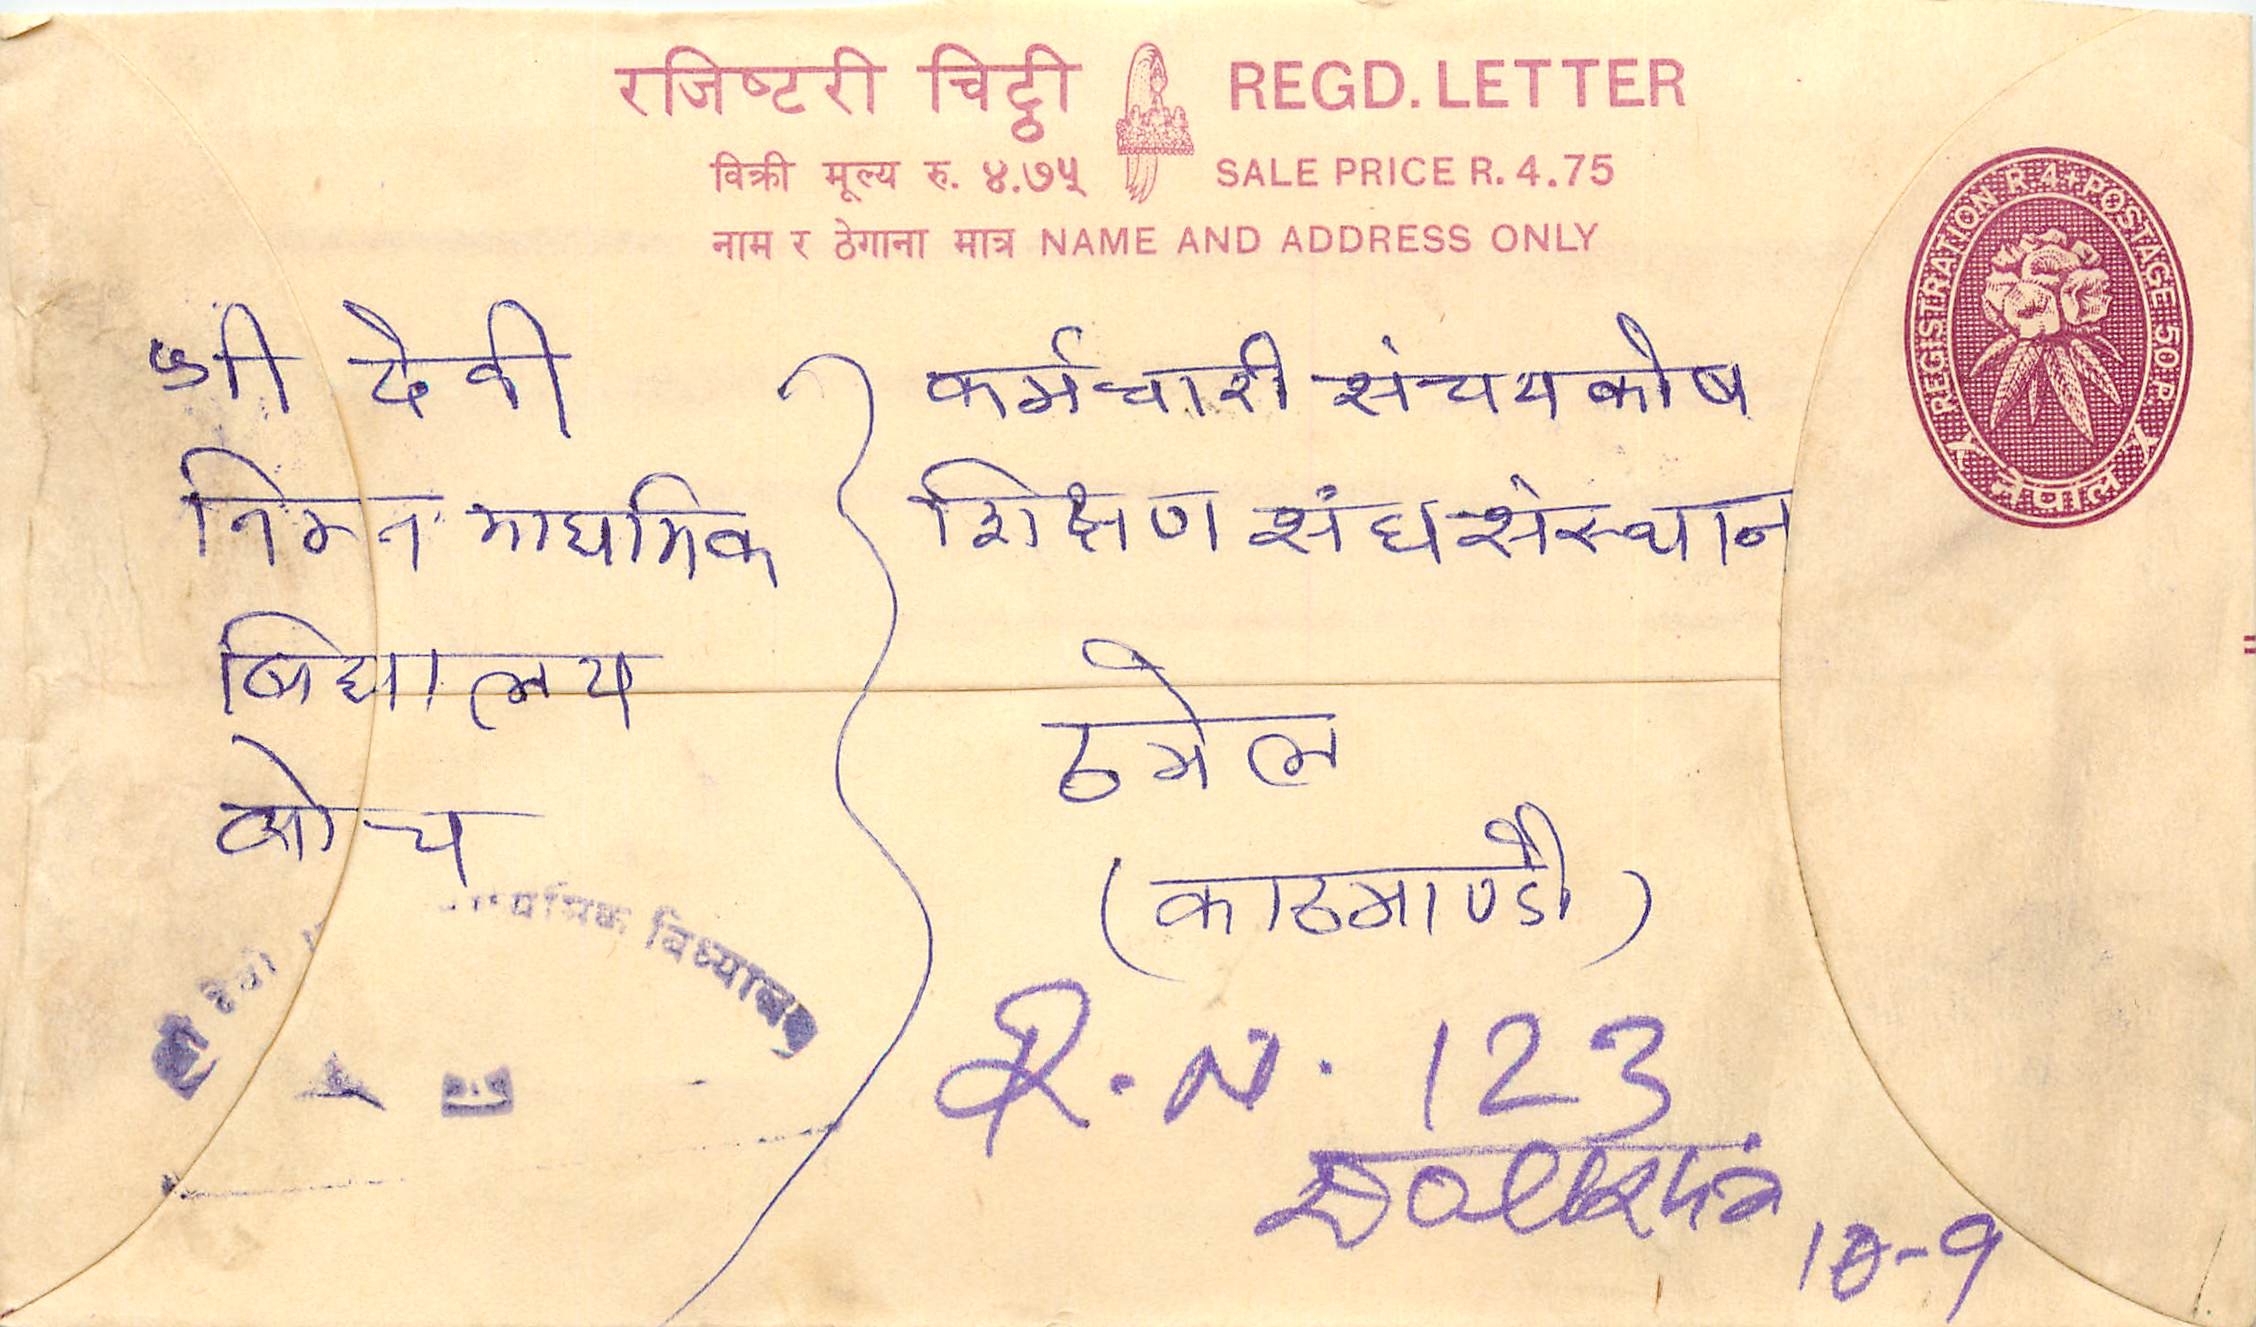 रजिष्टरी चिट्ठी REGD. LETTER
विक्री मूल्य रु. ४.७५ SALE PRICE R. 4.75
नाम र ठेगाना मात्र NAME AND ADDRESS ONLY
REGISTRATION R 4+POSTAGE 50 P.
नेपाल
श्री देवी
निम्न माध्यमिक
बिद्यालय
बोच
कर्मचारी संचयकोष
शिक्षण संघसंस्थान
ठमेल
(काठमाण्डौ)
विध्यालय
R. N. 123
Dolkha
10-9